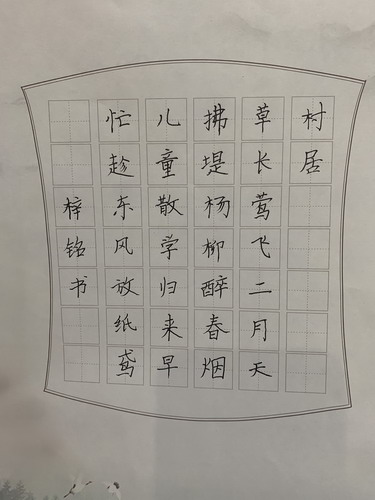 村居
草长莺飞二月天
拂堤杨柳醉春烟
儿童散学归来早
忙趁东风放纸鸢
梓铭书